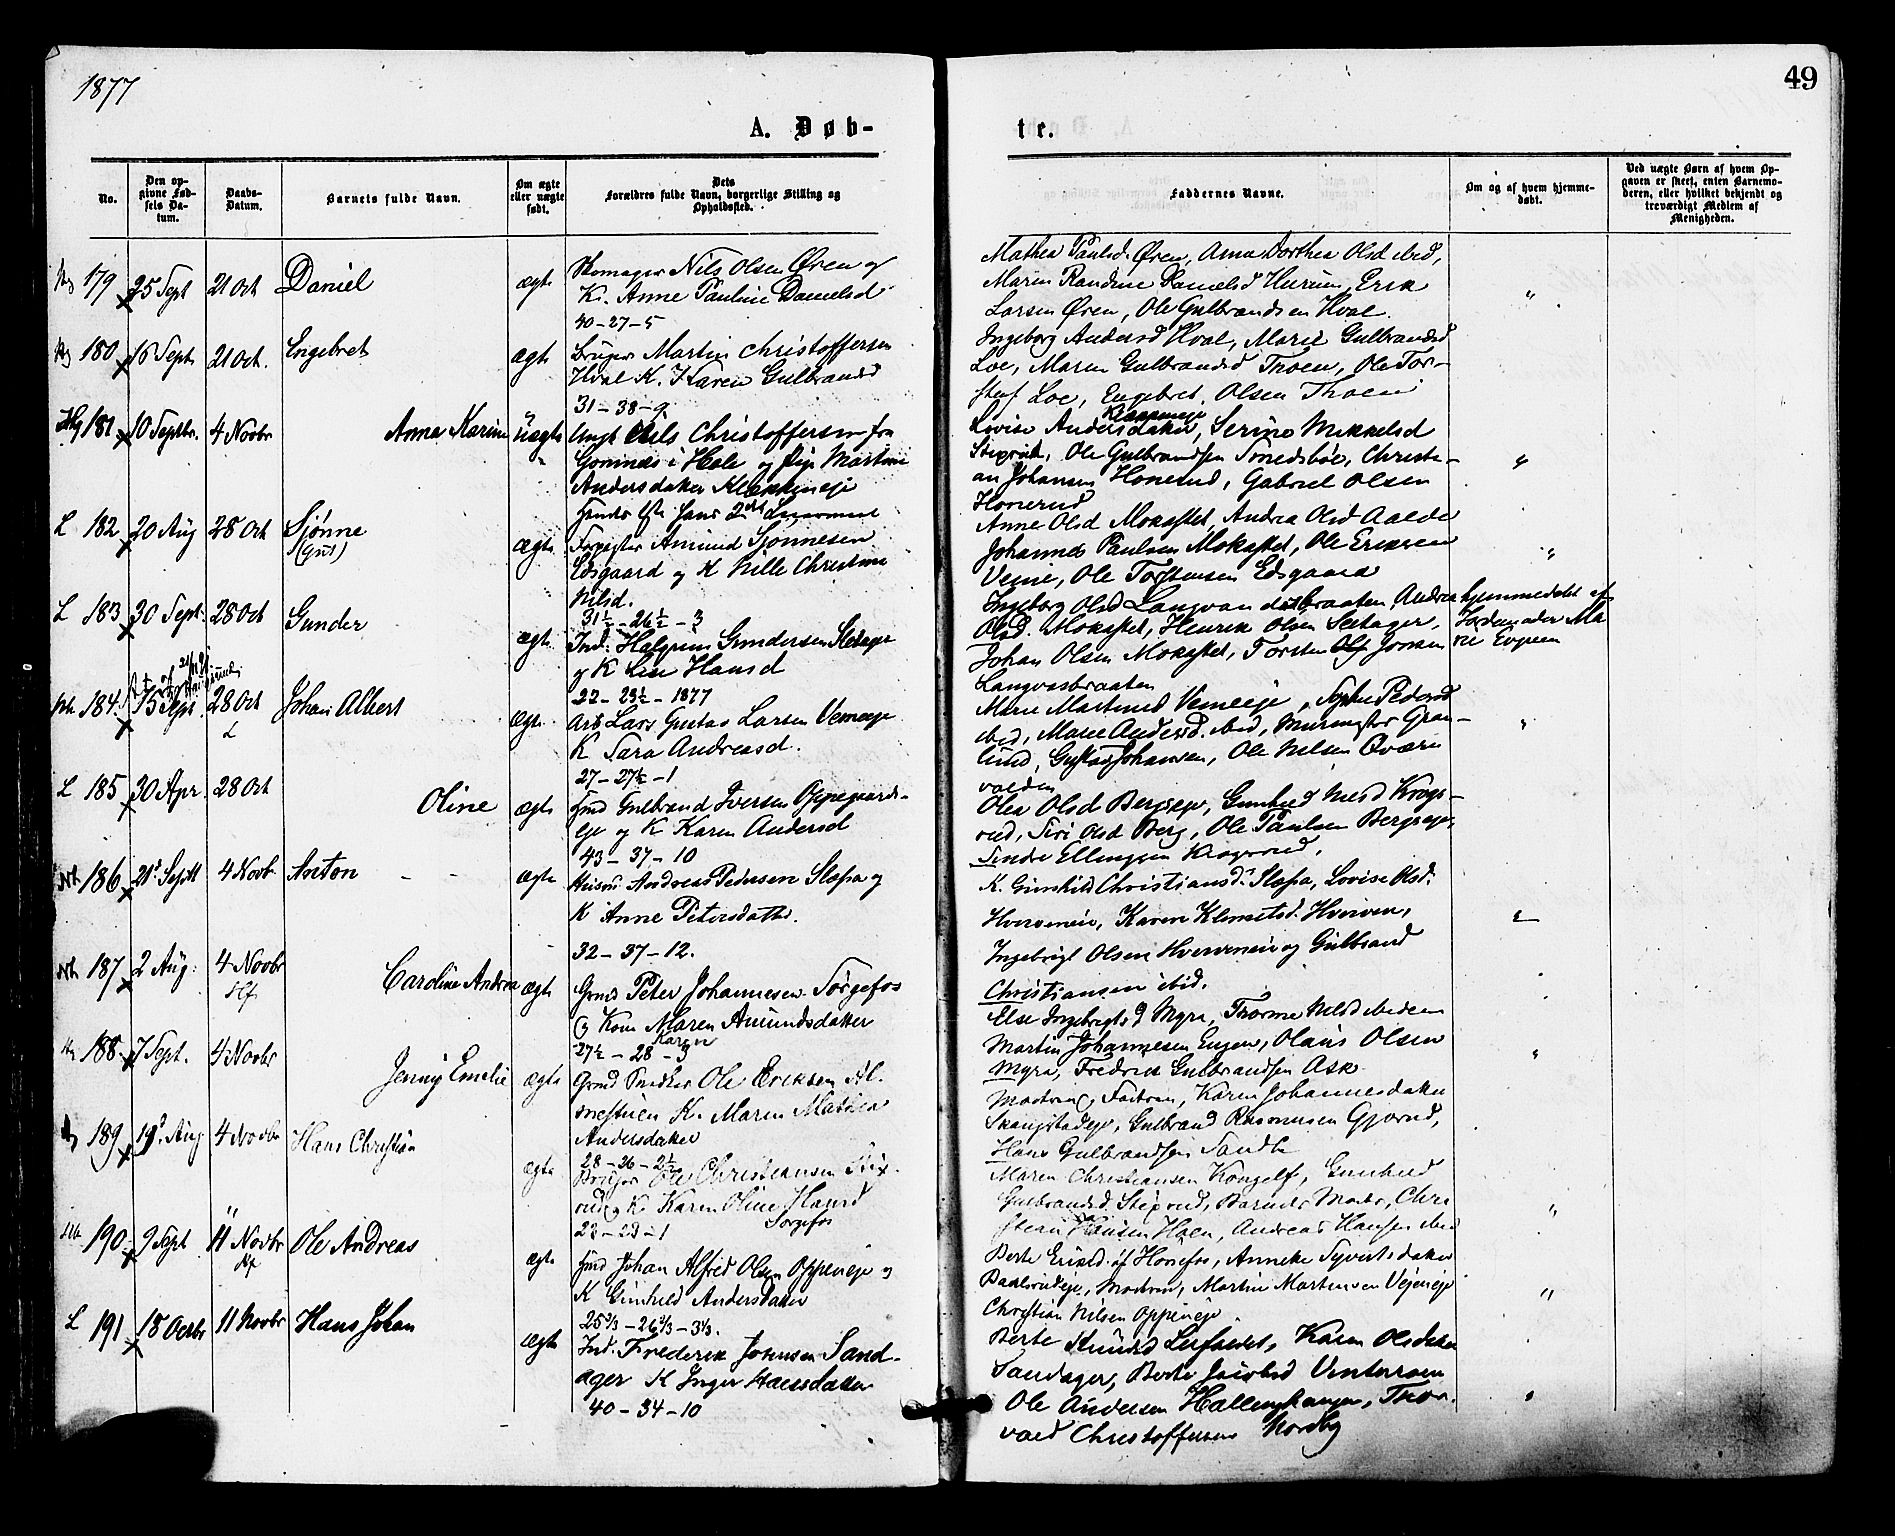 1877
49
A. Døb-
tr.
No.
Den op-
givne Fød-
sels Da-
tum.
Daabs-
Datum.
Barnets fulde Navn.
Om ægte
eller uægte
født.
Dets
Forældres fulde Navn, borgerlige Stilling og
Opholdssted.
Faddernes Navne.
Om og af hvem hjemme-
døbt.
Ved uægte Børn af hvem Op-
gaven er skeet, enten Barnemo-
deren, eller hvilket bekjendt og
troværdigt Medlem af
Menigheden.
179 25 Sept 21 Oct Daniel ægte
Skomager Nils Olsen Øren og
K. Anne Pauline Danielsd
40-27-5
Mathea Paulsd. Øren, Anna Dorthea Olsd ibid,
Maren Randine Danielsd Hurum, Erik
Larsen Øren, Ole Gulbrandsen Hval.
180 16 Sept 21 Oct. Engebret ægte
Bruger Martin Christoffersen
Hval K. Karen Gulbrandsd
31-38-9
Ingeborg Andersd Hval, Marie Gulbrandsd
Loe, Maren Gulbrandsd Thoen, Ole Tor-
stens Loe, Engebret Olsen Thoen
181 10 Septbr. 4 Novbr Anna Karine uægte
Ungk Nils Christoffersen fra
i Hole og Pige Martine
Andersdatter Klækkeneie
hans 2det Leiermaal
Lovise Andersdatter, Serine Mikkelsd
Stixrud, Ole Gulbrandsen Smedsbøe, Christi-
an Johansen Honerud, Gabriel Olsen
Honerud
L 182 20 Aug 28 Oct Sjønne
(Gut)
ægte
Forpagter Amund Sjønnesen
Edsgaard og K Nille Christine
Nilsd.
31½-26½-3
Anne Olsd Mokastet, Andrea Olsd Aalde
Johannes Paulsen Mokastet, Ole Eriksen
Veine, Ole Torstensen Edsgaard
L 183 30 Sept. 28 Oct Gunder ægte
Ind. Halgrim Gundersen Setager
og K Lise Hansd
22-23½-1877
Ingeborg Olsd Langvandsbraaten, Andrea
Olsd. Mokastet, Henrik Olsen Setager,
Johan Olsen Mokastet, Torsten Jonsen
Langvasbraaten
hjemmedøbt af
Jordemoder Ma-
rie Evjeen
184 15 Sept. 28 Oct
L
Johan Albert ægte
Arb Lars Gustav Larsen Vemeeje
K Sara Andreasd.
27-27½-1
Marie Martinsd Vemeeje, Sophie Pedersd
ibid, Marie Andersd. ibid, Murmester Gran-
lund, Gustav Johansen, Ole Nilsen Qværn-
volden
L 185 30 Apr. 28 Oct Oline ægte
Gulbrand Iversen Oppegaards-
eje og K Karen Andersd
43-37-10
Olea Olsd Bergseje, Gunhild Nilsd Krogs-
rud, Siri Olsd Berg, Ole Paulsen Bergseje,
Sindre Ellingsen Krogsrud.
186 21de Septb 4 Novb. Anton - - ægte
Husm. Andreas Pedersen Slapa og
K Anne Petersdatter.
32-37-12.
K. Gunhild Christiansd. Slapa, Lovise Olsd.
Hverveneie, Karen Klemetsd. Hverven,
Ingebrigt Olsen Hverveneie og Gulbrand
Christiansen ibid.
187 2 Aug: 4 Novbr
Hf.
Caroline Andrea ægte
Grmd Peter Johannesen Sørgefos
og Kone Maren Amundsdatter
Karen
27½-28-3
Else Ingebrigtsd Myra, Thorine Nilsd ibidem
Martin Johannesen Eugen, Olaus Olsen
Myra, Fredrik Gulbrandsen Ask
188 7 Sept. 4 Novbr Jenny Emelie ægte
Grmd Snedker Ole Eriksen Al-
mestuen K. Maren Mathea
Andersdatter
28-26-2½
Modren, Fadren, Karen Johannesdatter
Skaugstadeje, Gulbrand Rasmussen Gjorud,
Hans Gulbrandsen Sandli
189 19de Aug 4 Novbr Hans Christian ægte
Bruger Ole Christiansen Stix-
rud og K. Karen Oline Hansd
Sørgefos
23-23-1
Maren Christiansen Kongelf, Gunhild
Gulbrandsd. Stixrud, Barnets Moder, Chri-
stian Hansen Hoen, Andreas Hansen ibid
190 9 Sept 11 Novbr
Hf
Ole Andreas ægte
Johan Alfred Olsen Oppeneje og
K Gunhild Andersdatter
25⅔-26⅔-3⅓.
Berte Eriksd. af Hønefos, Anneke Syvertsdatter
Modren, Martin Martinsen Vejeneje
Christian Nilsen Oppeneje
L 191 18 Octbr 11 Novbr Hans Johan ægte
Ind. Frederik Jonsen Sand-
ager K Inger Hansdatter
40-34-10
Berte Knudsd, Karen Olsdatter
Sandager, Berte Jacobsd Vinterroen
Ole Andersen, Thor-
vald Christoffersen Nordby